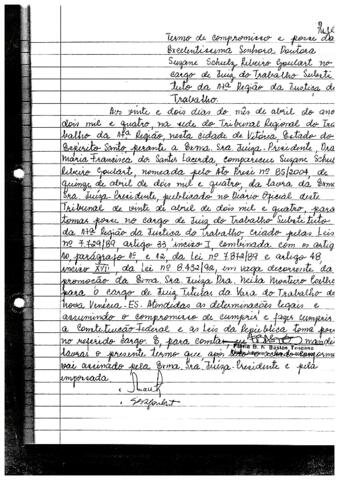 Termo de compromisso e posse da
Excelentíssima Senhora Doutora
Suzane Schulz Ribeiro Goulart no
cargo de Juiz do Trabalho Substi
tuto da 17ª Região da Justiça do
Trabalho.
Aos vinte e dois dias do mês de abril do ano
dois mil e quatro, na sede do Tribunal Regional do Tra
balho da 17ª Região, nesta cidade de Vitória, Estado do
Espírito Santo, perante a Exma. Sra. Juíza-Presidente, Dra
Maria Francisca dos Santos Lacerda, compareceu Suzane Schulz
Ribeiro Goulart, nomeada pelo Ato Presi nº 85/2004, de
quinze de abril de dois mil e quatro, da lavra da Exma
Sra. Juíza Presidente, publicado no Diário Oficial deste
Tribunal de vinte de abril de dois mil e quatro, para
tomar posse no cargo de Juiz do Trabalho Substituto
da 17ª Região da Justiça do Trabalho, criado pelas Leis
nº 7.729/89, artigo 33, inciso I, combinada com os artig
10, parágrafo 1º, e 12, da Lei nº 7.872/89 e artigo 48,
inciso XVI, da Lei nº 8.432/92, em vaga decorrente da
promoção da Exma. Sra. Juíza Dra. Neila Monteiro Coelho
para o cargo de Juiz Titular da Vara do Trabalho de
Nova Venécia-ES. Atendidas as determinações legais e
assumindo o compromisso de cumprir e fazer cumprir
a Constituição Federal e as Leis da República toma posse
no referido cargo. E, para constar, eu mandei
Flávia B. N. Bastos Toscano
lavrar o presente Termo que após conforme
vai assinado pela Exma. Sra. Juíza-Presidente e pela
empossada.